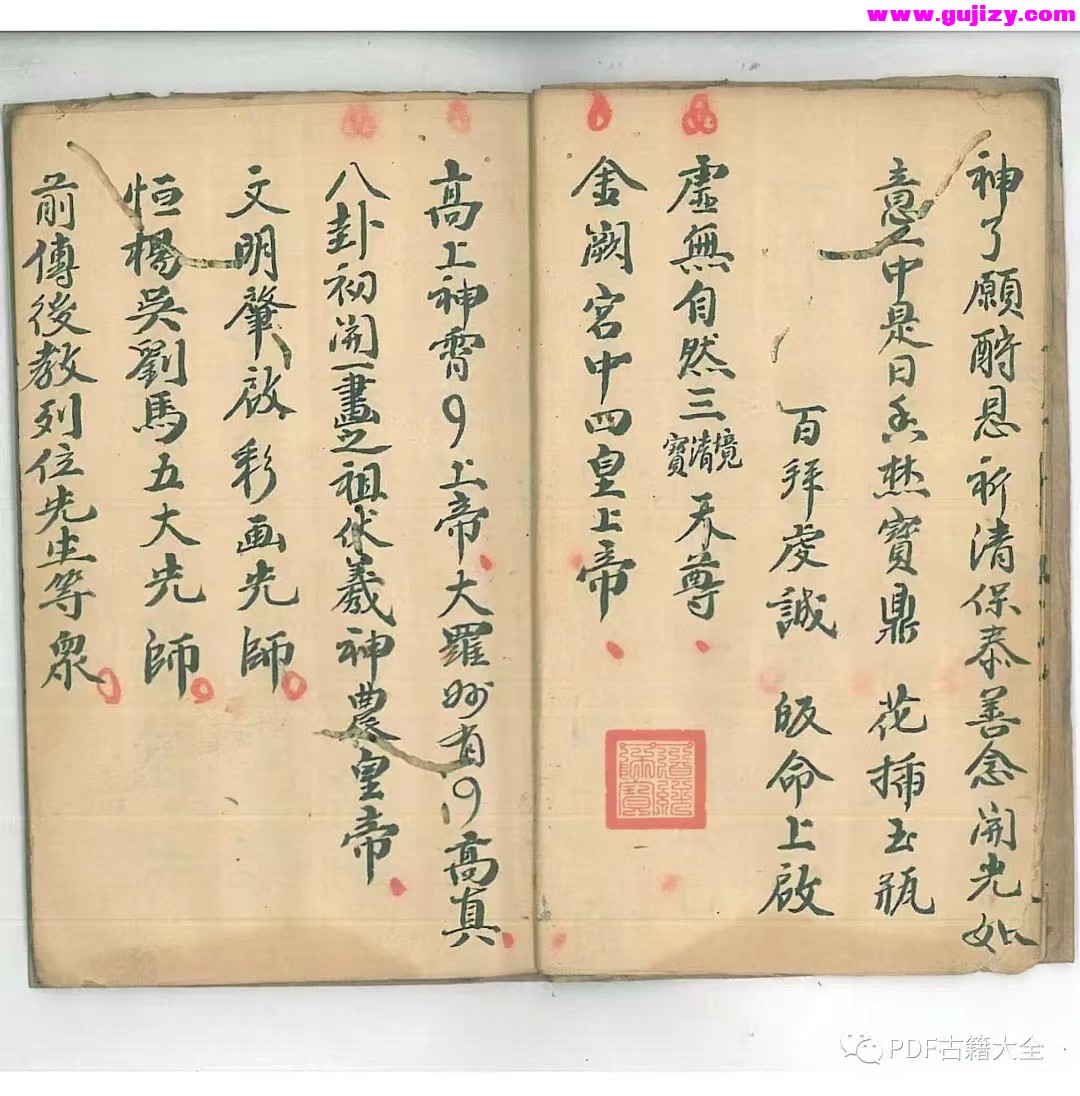 www.gujizy.com
神了願酧恩祈清保泰善念開光如
意人中是日香焚寶鼎 花插玉瓶
百拜虔誠 皈命上啟
虛無自然三境清寶天尊
金闕宮中四皇上帝
高上神霄9上帝大羅妙有19高真
八卦初開一畫之祖伏羲神農皇帝
文明肇啟彩画先師
恒楊吳劉馬五大先師
前傳後教列位先生等眾
道經師寶
PDF古籍大全